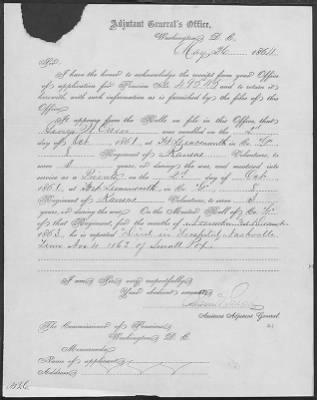 Adjutant General's Office,
Washington, D. C.
May 26 1864.
Sir:
I have the honor to acknowledge the receipt from your Office
of application for Pension No. and to return it
herewith, with such information as is furnished by the files of this
Office.
It appears from the Rolls on file in this Office, that
George W. was enrolled on the 2d
day of Oct 1861, at Ft Leavenworth in Co.
Regiment of Kansas Volunteers, to
serve 3 years, or during the war, and mustered into
service as a Private on the 2d day of Oct.
1861, at Fort Leavenworth, in Co. 8
Regiment of Kansas Volunteers, to serve 3
years, or during the war. On the Muster Roll of Co.
of that Regiment, for the months of
186, he is reported "Died in Hospital, Nashville
Tenn Nov 11 1862 of Small Pox."
I am, Sir, very respectfully,
Your obedient servant,
Assistant Adjutant General.
The Commissioner of Pensions,
Washington, D. C.
Memoranda:
Name of applicant,
Address,